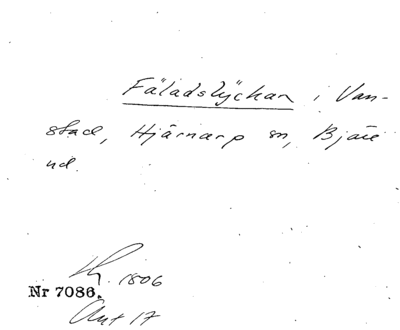 Fäladslyckan i Van-
stad, Hjärnarp sn, Bjäre
hd.
1806
Nr 7086.
Akt 17